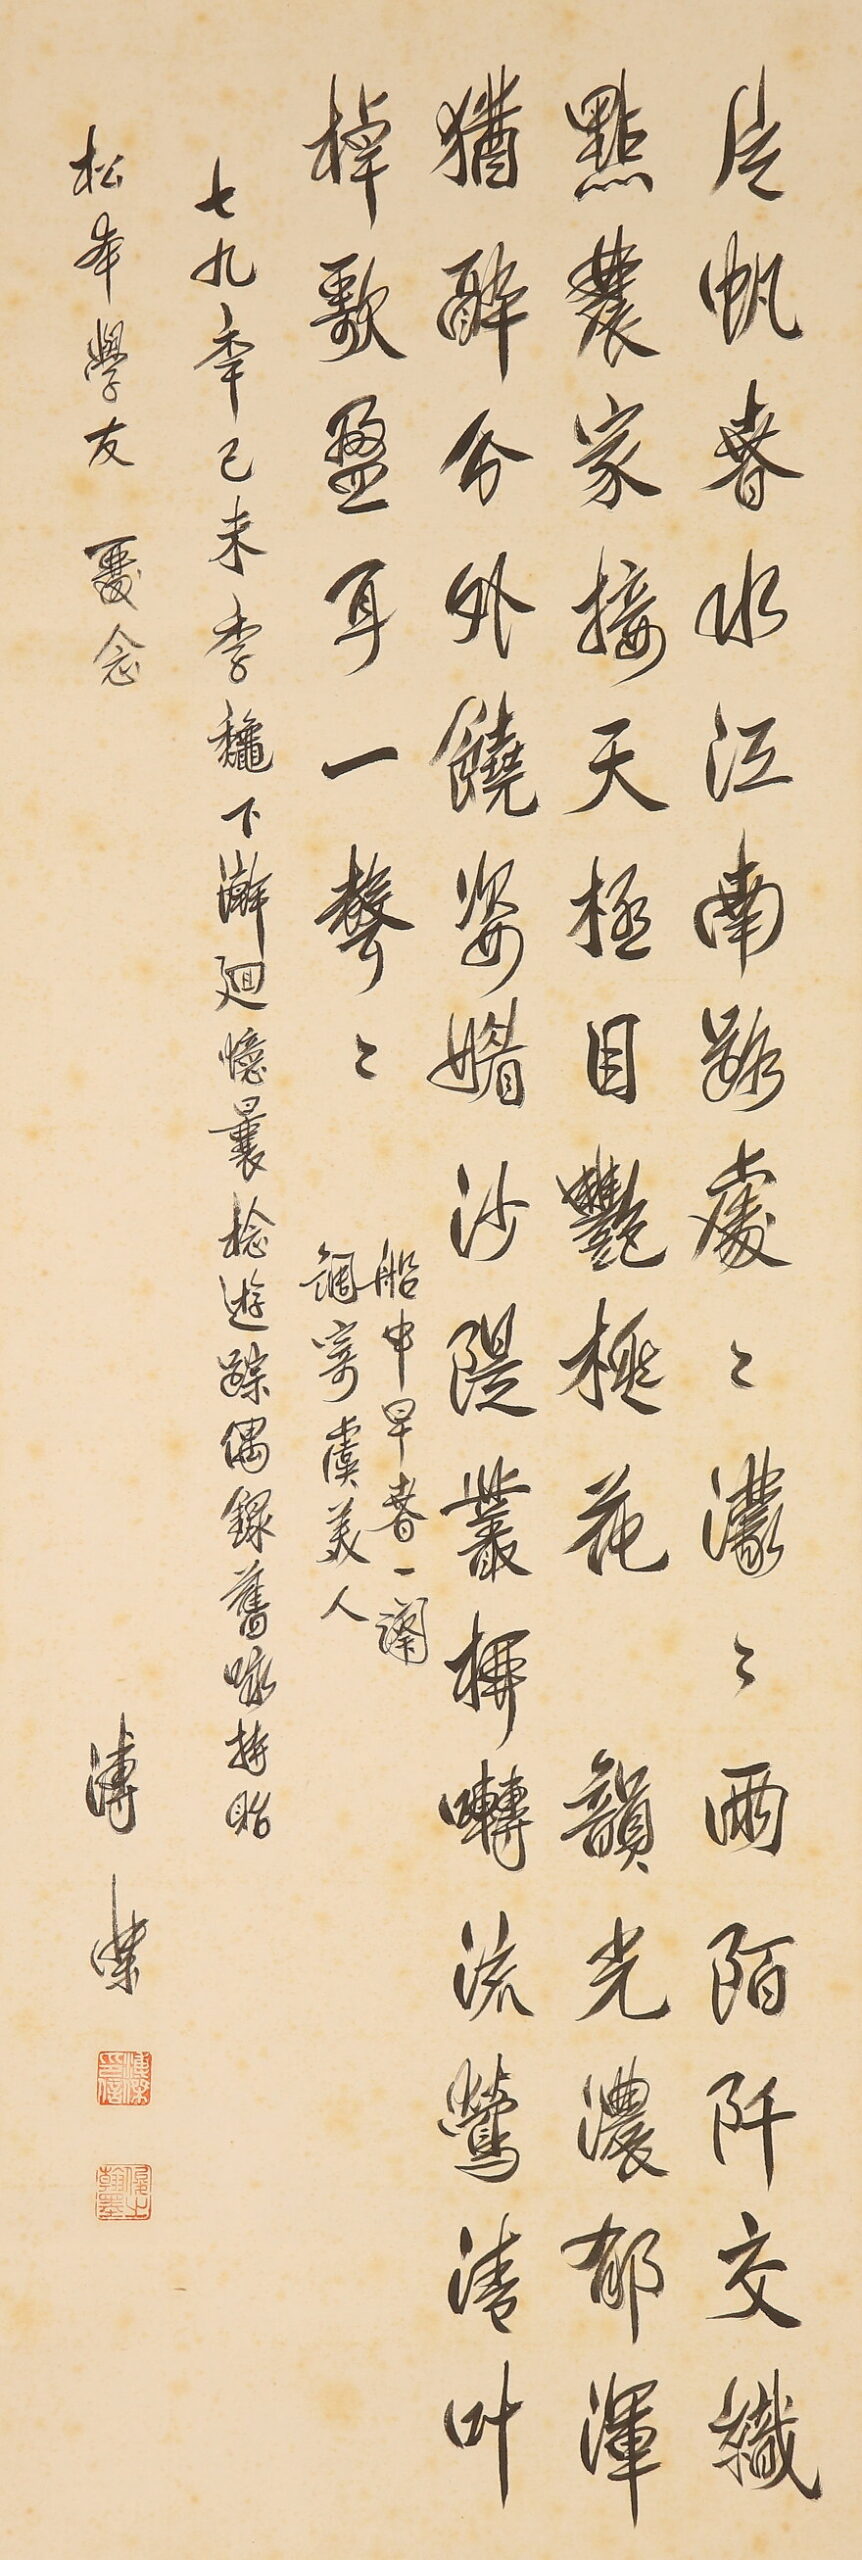 片帆春水江南路處〻濛〻雨陌阡交織
點農家接天極目艷桃花 韻光濃郁渾
猶醉分外饒姿媚沙隄叢柳囀流鶯清叶
棹歌盈耳一聲〻
船中早春一闋
調寄虞美人
七九年己未季秋下澣廻憶曩稔遊踪偶錄舊咏持貽
松年學友 愛念
溥傑
溥傑印信